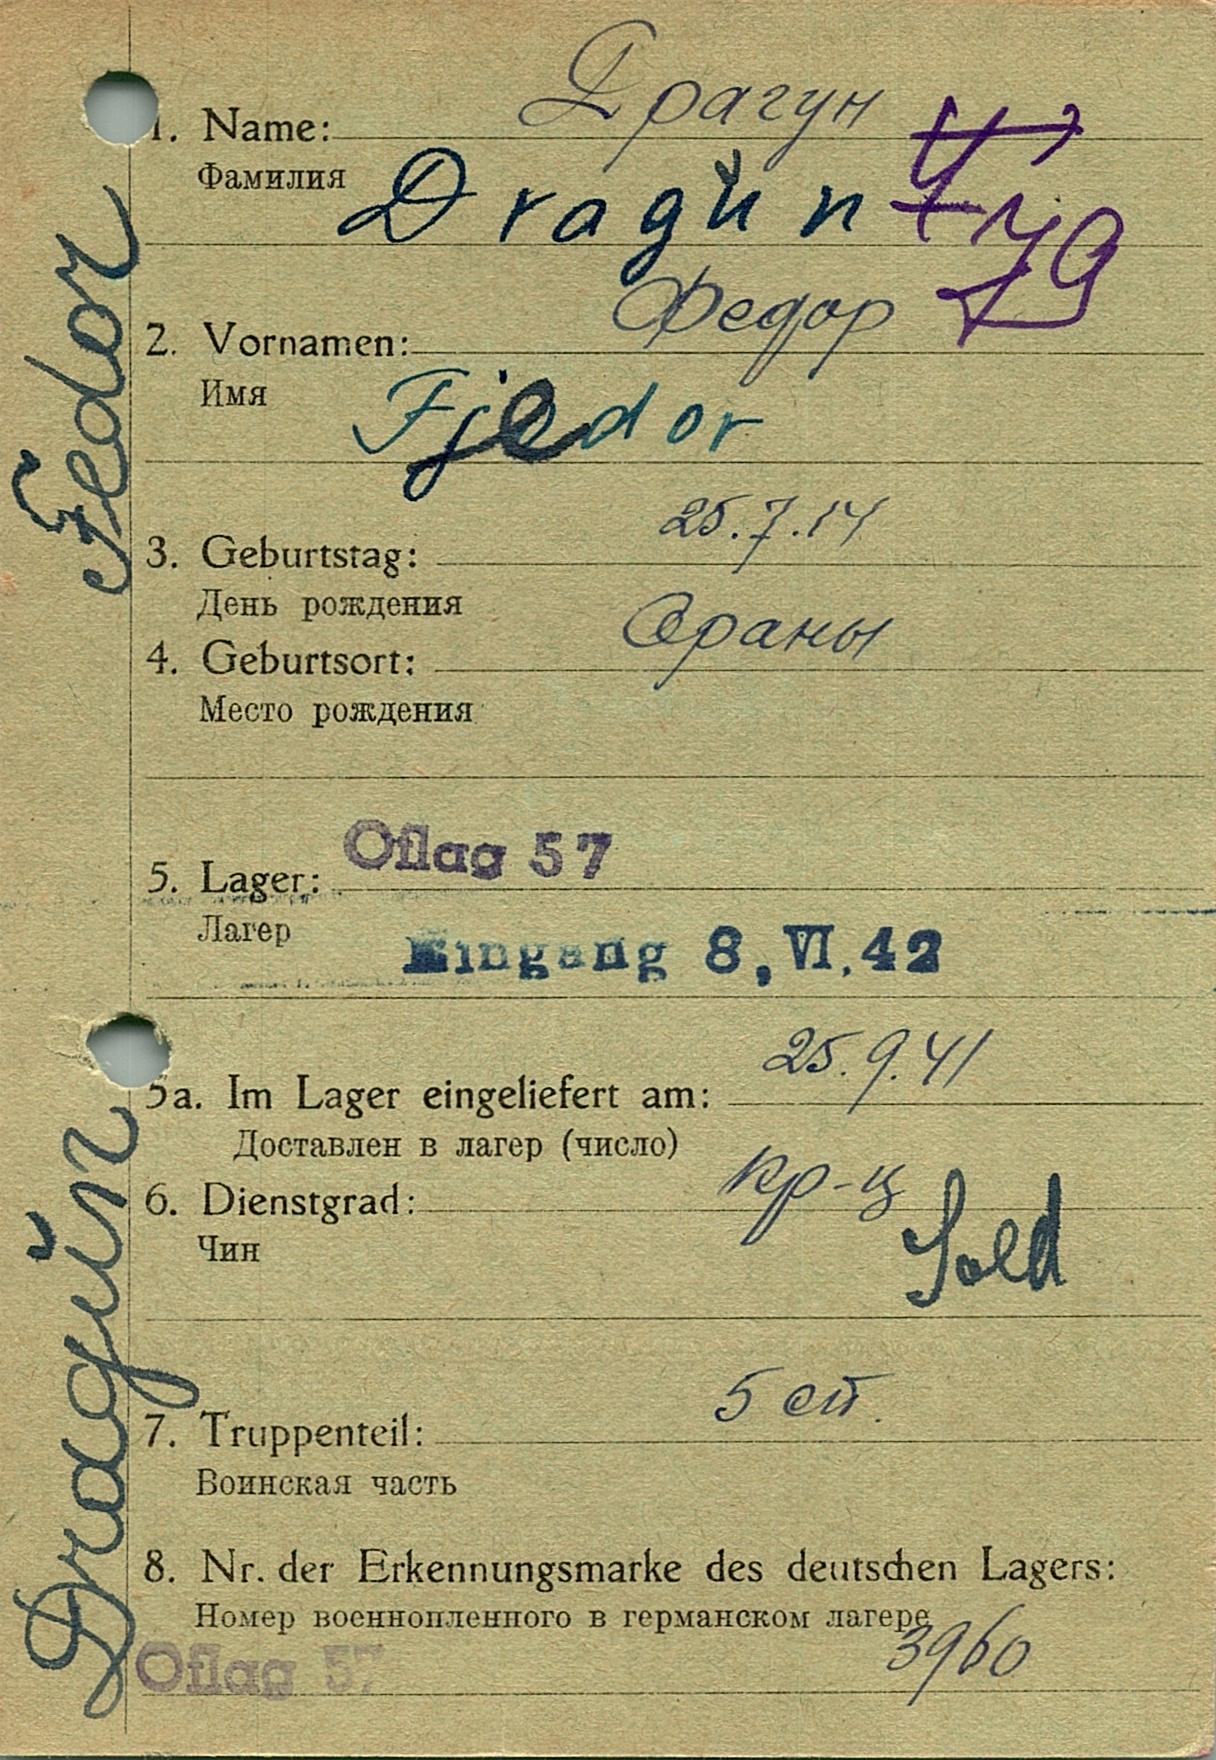 Драгун
1. Name:
Фамилия
Dragŭn
79
Федор
2. Vornamen:
Имя
Fjedor
25.7.14
3. Geburtstag:
День рождения
Ораны
4. Geburtsort:
Место рождения
Oflag 57
5. Lager:
Лагер
Eingang 8, VI. 42
25.9.41
5a. Im Lager eingeliefert am:
Доставлен в лагер (число)
кр-ц
6. Dienstgrad:
Чин
Sold
5 сп.
7. Truppenteil:
Воинская часть
8. Nr. der Erkennungsmarke des deutschen Lagers:
Номер военнопленного в германском лагере
3960
Oflag 57
Dragŭn Fedor